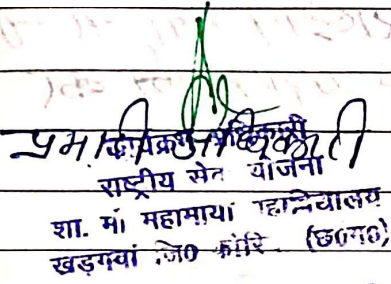 कार्यक्रम अधिकारी
राष्ट्रीय सेवा योजना
शा. मां महामाया महाविद्यालय
खड़गवां जि0 कोरि (छ0ग0)